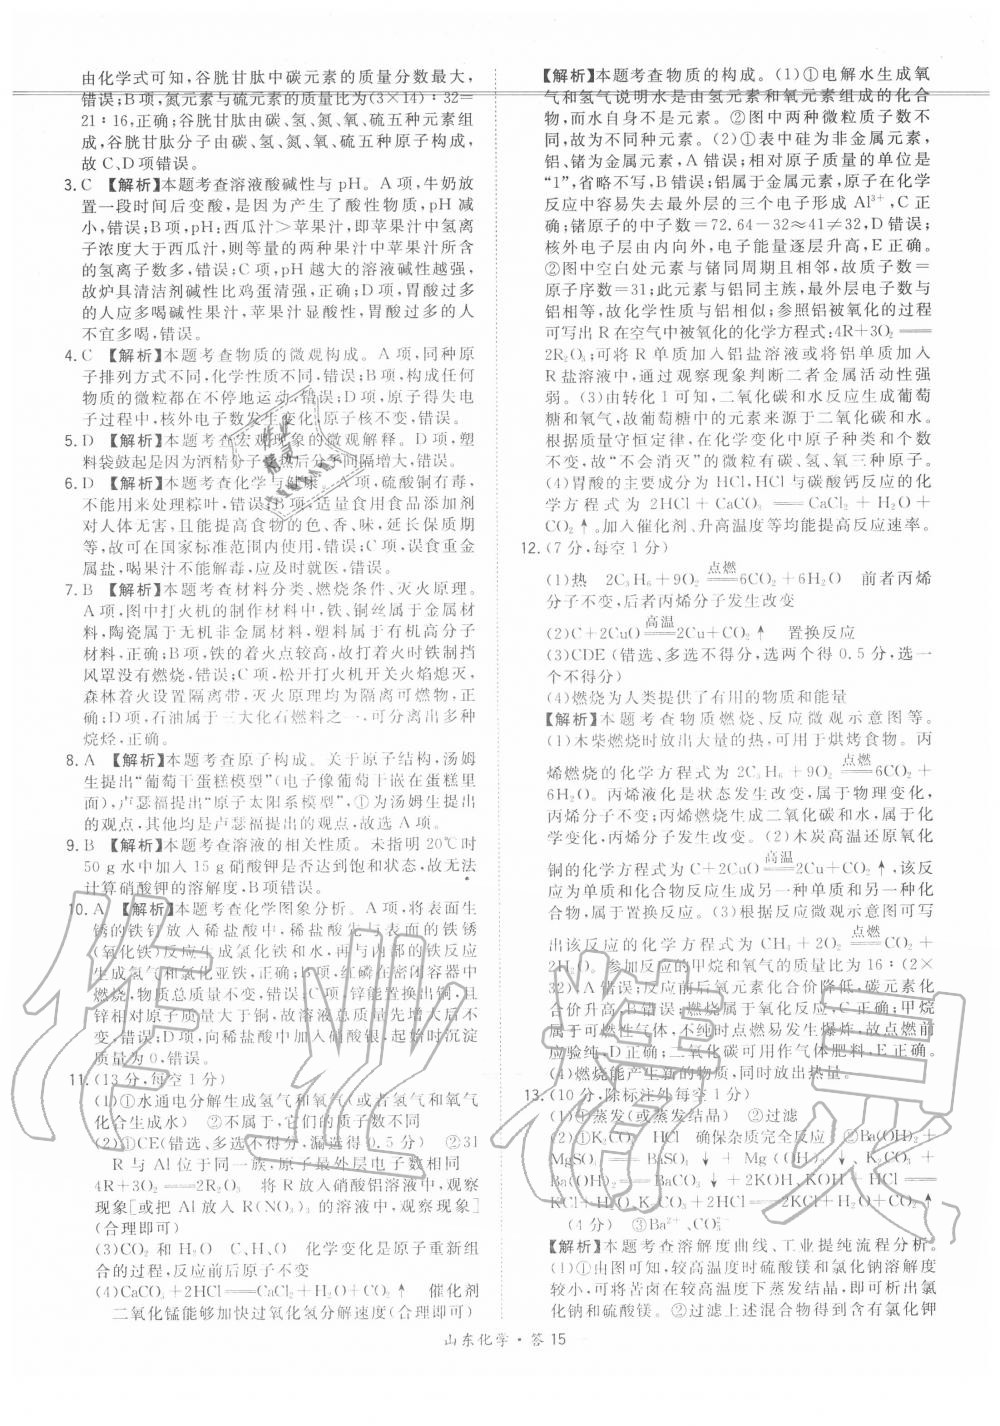 由化学式可知,谷胱甘肽中碳元素的质量分数最大,
错误;B项,氮元素与硫元素的质量比为(3×14)∶32=
21∶16,正确;谷胱甘肽由碳、氢、氮、氧、硫五种元素组
成,谷胱甘肽分子由碳、氢、氮、氧、硫五种原子构成,
故C、D项错误。
3. C 【解析】本题考查溶液酸碱性与pH。A项,牛奶放
置一段时间后变酸,是因为产生了酸性物质,pH减
小,错误;B项,pH:西瓜汁>苹果汁,即苹果汁中氢离
子浓度大于西瓜汁,则等量的两种果汁中苹果汁所含
的氢离子数多,错误;C项,pH越大的溶液碱性越强,
故炉具清洁剂碱性比鸡蛋清强,正确;D项,胃酸过多
的人应多喝碱性果汁,苹果汁显酸性,胃酸过多的人
不宜多喝,错误。
4. C 【解析】本题考查物质的微观构成。A项,同种原
子排列方式不同,化学性质不同,错误;B项,构成任何
物质的微粒都在不停地运动,错误;D项,原子得失电
子过程中,核外电子数发生变化,原子核不变,错误。
5. D 【解析】本题考查宏观现象的微观解释。D项,塑
料袋鼓起是因为酒精分子受热后分子间隔增大,错误。
6. D 【解析】本题考查化学与健康。A项,硫酸铜有毒,
不能用来处理粽叶,错误;B项,适量食用食品添加剂
对人体无害,且能提高食物的色、香、味,延长保质期
等,故可在国家标准范围内使用,错误;C项,误食重金
属盐,喝果汁不能解毒,应及时就医,错误。
7. B 【解析】本题考查材料分类、燃烧条件、灭火原理。
A项,图中打火机的制作材料中,铁、铜丝属于金属材
料,陶瓷属于无机非金属材料,塑料属于有机高分子
材料,正确;B项,铁的着火点较高,故打火时铁制挡
风罩没有燃烧,错误;C项,松开打火机开关火焰熄灭,
森林着火设置隔离带,灭火原理均为隔离可燃物,正
确;D项,石油属于三大化石燃料之一,可分离出多种
烷烃,正确。
8. A 【解析】本题考查原子构成。关于原子结构,汤姆
生提出“葡萄干蛋糕模型”(电子像葡萄干嵌在蛋糕里
面),卢瑟福提出“原子太阳系模型”,①为汤姆生提出
的观点,其他均是卢瑟福提出的观点,故选A项。
9. B 【解析】本题考查溶液的相关性质。未指明20℃时
50 g水中加入15 g硝酸钾是否达到饱和状态,故无法
计算硝酸钾的溶解度,B项错误。
10. A 【解析】本题考查化学图象分析。A项,将表面生
锈的铁钉放入稀盐酸中,稀盐酸先与表面的铁锈
(氧化铁)反应生成氯化铁和水,再与内部的铁反应
生成氢气和氯化亚铁,正确;B项,红磷在密闭容器中
燃烧,物质总质量不变,错误;C项,锌能置换出铜,且
锌相对原子质量大于铜,故溶液总质量先增大后不
变,错误;D项,向稀盐酸中加入硝酸银,起始时沉淀
质量为0,错误。
11. (13分,每空1分)
(1)①水通电分解生成氢气和氧气(或者氢气和氧气
化合生成水) ②不属于,它们的质子数不同
(2)①CE(错选、多选不得分,漏选得0.5分) ②31
R与Al位于同一族,原子最外层电子数相同
4R+3O₂══2R₂O₃ 将R放入硝酸铝溶液中,观察
现象[或把Al放入R(NO₃)₃的溶液中,观察现象]
(合理即可)
(3)CO₂和H₂O C、H、O 化学变化是原子重新组
合的过程,反应前后原子不变
(4)CaCO₃+2HCl══CaCl₂+H₂O+CO₂↑ 催化剂
二氧化锰能够加快过氧化氢分解速度(合理即可)
【解析】本题考查物质的构成。(1)①电解水生成氧
气和氢气说明水是由氢元素和氧元素组成的化合
物,而水自身不是元素。②图中两种微粒质子数不
同,故为不同种元素。(2)①表中硅为非金属元素,
铝、锗为金属元素,A错误;相对原子质量的单位是
“1”,省略不写,B错误;铝属于金属元素,原子在化学
反应中容易失去最外层的三个电子形成Al³⁺,C正
确;锗原子的中子数=72.64-32≈41≠32,D错误;
核外电子层由内向外,电子能量逐层升高,E正确。
②图中空白处元素与锗同周期且相邻,故质子数=
原子序数=31;此元素与铝同主族,最外层电子数与
铝相等,故化学性质与铝相似;参照铝被氧化的过程
可写出R在空气中被氧化的化学方程式:4R+3O₂══
2R₂O₃;可将R单质加入铝盐溶液或将铝单质加入
R盐溶液中,通过观察现象判断二者金属活动性强
弱。(3)由转化1可知,二氧化碳和水反应生成葡萄
糖和氧气,故葡萄糖中的元素来源于二氧化碳和水。
根据质量守恒定律,在化学变化中原子种类和个数
不变,故“不会消灭”的微粒有碳、氢、氧三种原子。
(4)胃酸的主要成分为HCl,HCl与碳酸钙反应的化
学方程式为2HCl+CaCO₃══CaCl₂+H₂O+
CO₂↑。加入催化剂、升高温度等均能提高反应速率。
12. (7分,每空1分)
(1)热 2C₃H₆+9O₂ 点燃══6CO₂+6H₂O 前者丙烯
分子不变,后者丙烯分子发生改变
(2)C+2CuO 高温══2Cu+CO₂↑ 置换反应
(3)CDE(错选、多选不得分,选两个得0.5分,选一
个不得分)
(4)燃烧为人类提供了有用的物质和能量
【解析】本题考查物质燃烧、反应微观示意图等。
(1)木柴燃烧时放出大量的热,可用于烘烤食物。丙
烯燃烧的化学方程式为2C₃H₆+9O₂ 点燃══6CO₂+
6H₂O。丙烯液化是状态发生改变,属于物理变化,
丙烯分子不变;丙烯燃烧生成二氧化碳和水,属于化
学变化,丙烯分子发生了改变。(2)木炭高温还原氧化
铜的化学方程式为C+2CuO 高温══2Cu+CO₂↑,该反
应为单质和化合物反应生成另一种单质和另一种化
合物,属于置换反应。(3)根据反应微观示意图可写
出该反应的化学方程式为CH₄+2O₂ 点燃══CO₂+
2H₂O。参加反应的甲烷和氧气的质量比为16∶(2×
32),A错误;反应前后氧元素化合价降低,碳元素化
合价升高,B错误;燃烧属于氧化反应,C正确;甲烷
属于可燃性气体,不纯时点燃易发生爆炸,故点燃前
应验纯,D正确;二氧化碳可用作气体肥料,E正确。
(4)燃烧能产生新的物质,同时放出热量。
13. (10分,除标注外每空1分)
(1)①蒸发(或蒸发结晶) ②过滤
(2)①K₂CO₃ HCl 确保杂质完全反应 ②Ba(OH)₂+
MgSO₄══BaSO₄↓+Mg(OH)₂↓、K₂CO₃+
Ba(OH)₂══BaCO₃↓+2KOH、KOH+HCl══
KCl+H₂O、K₂CO₃+2HCl══2KCl+H₂O+CO₂↑
(4分) ③Ba²⁺、CO₃²⁻
【解析】本题考查溶解度曲线、工业提纯流程分析。
(1)①由图可知,较高温度时硫酸镁和氯化钠溶解度
较小,可将苦卤在较高温度下蒸发结晶,即可析出氯
化钠和硫酸镁。②过滤上述混合物得到含有氯化钾
山东化学·答15
作业精灵